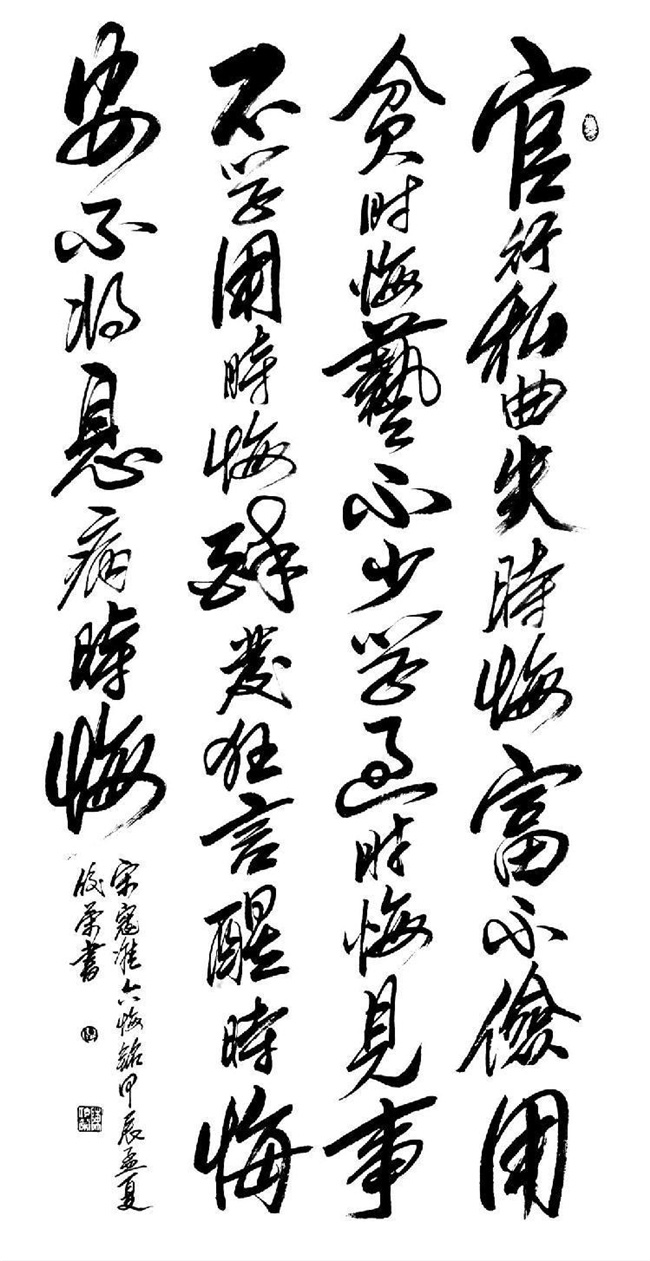 官行私曲失時悔富不儉用
貧时悔藝不少学過时悔見事
不学用時悔醉發狂言醒時悔
安不将息病時悔
宋寇準六悔銘甲辰孟夏
榮書